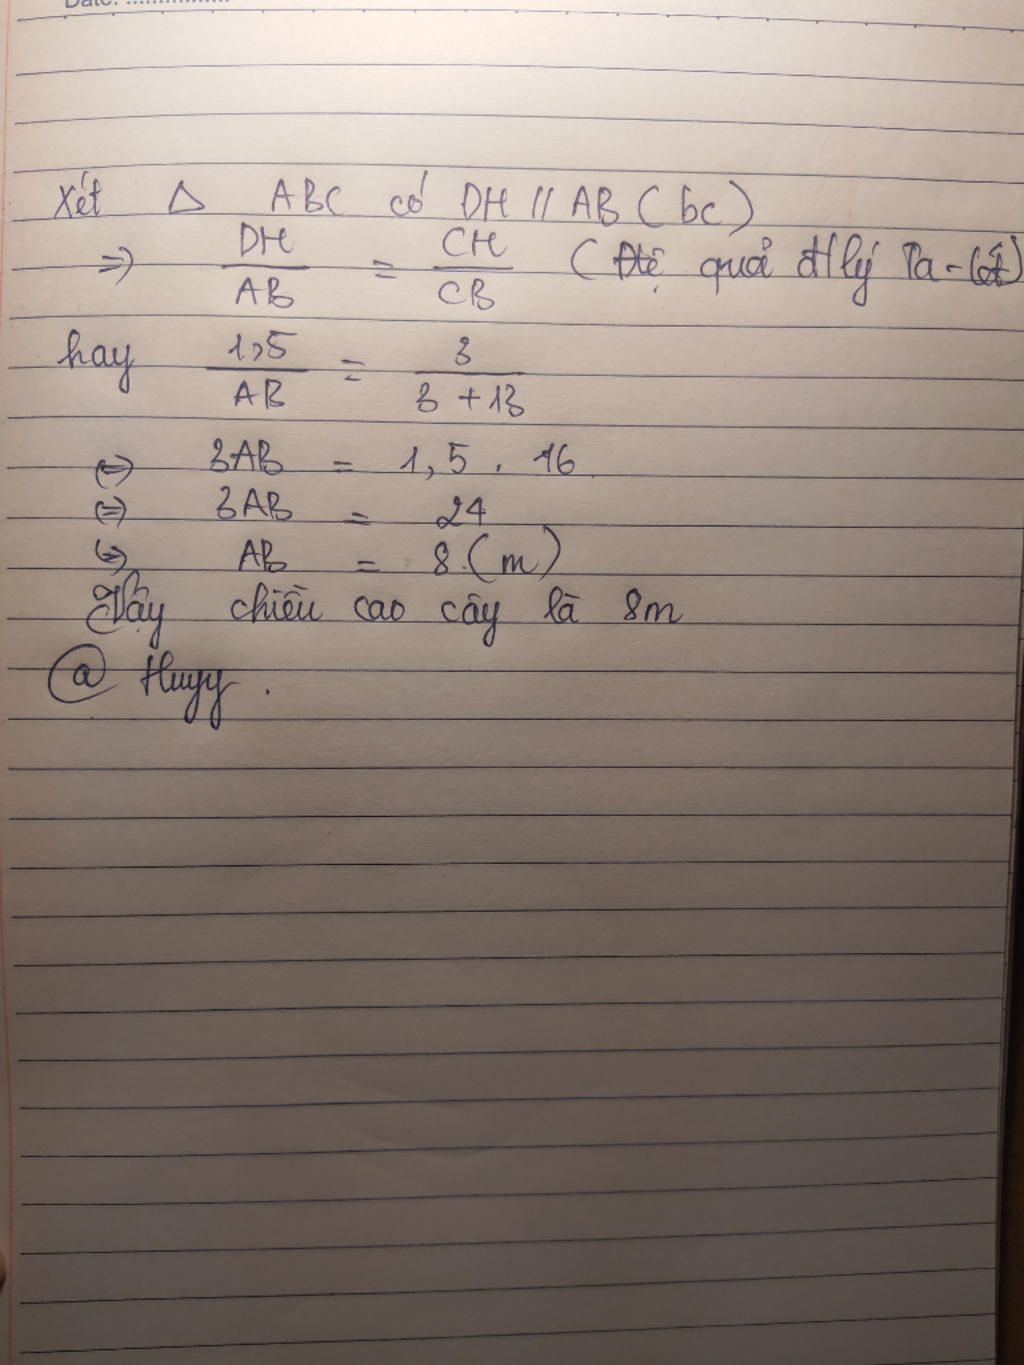 Date: ................
Xét Δ ABC có DH // AB (bc)
=> DH/AB = CH/CB (Hệ quả đ/lý Ta-lét)
hay 1,5/AB = 3/3+13
<=> 3AB = 1,5 . 16
<=> 3AB = 24
<=> AB = 8 (m)
Vậy chiều cao cây là 8m
@ Huyy .